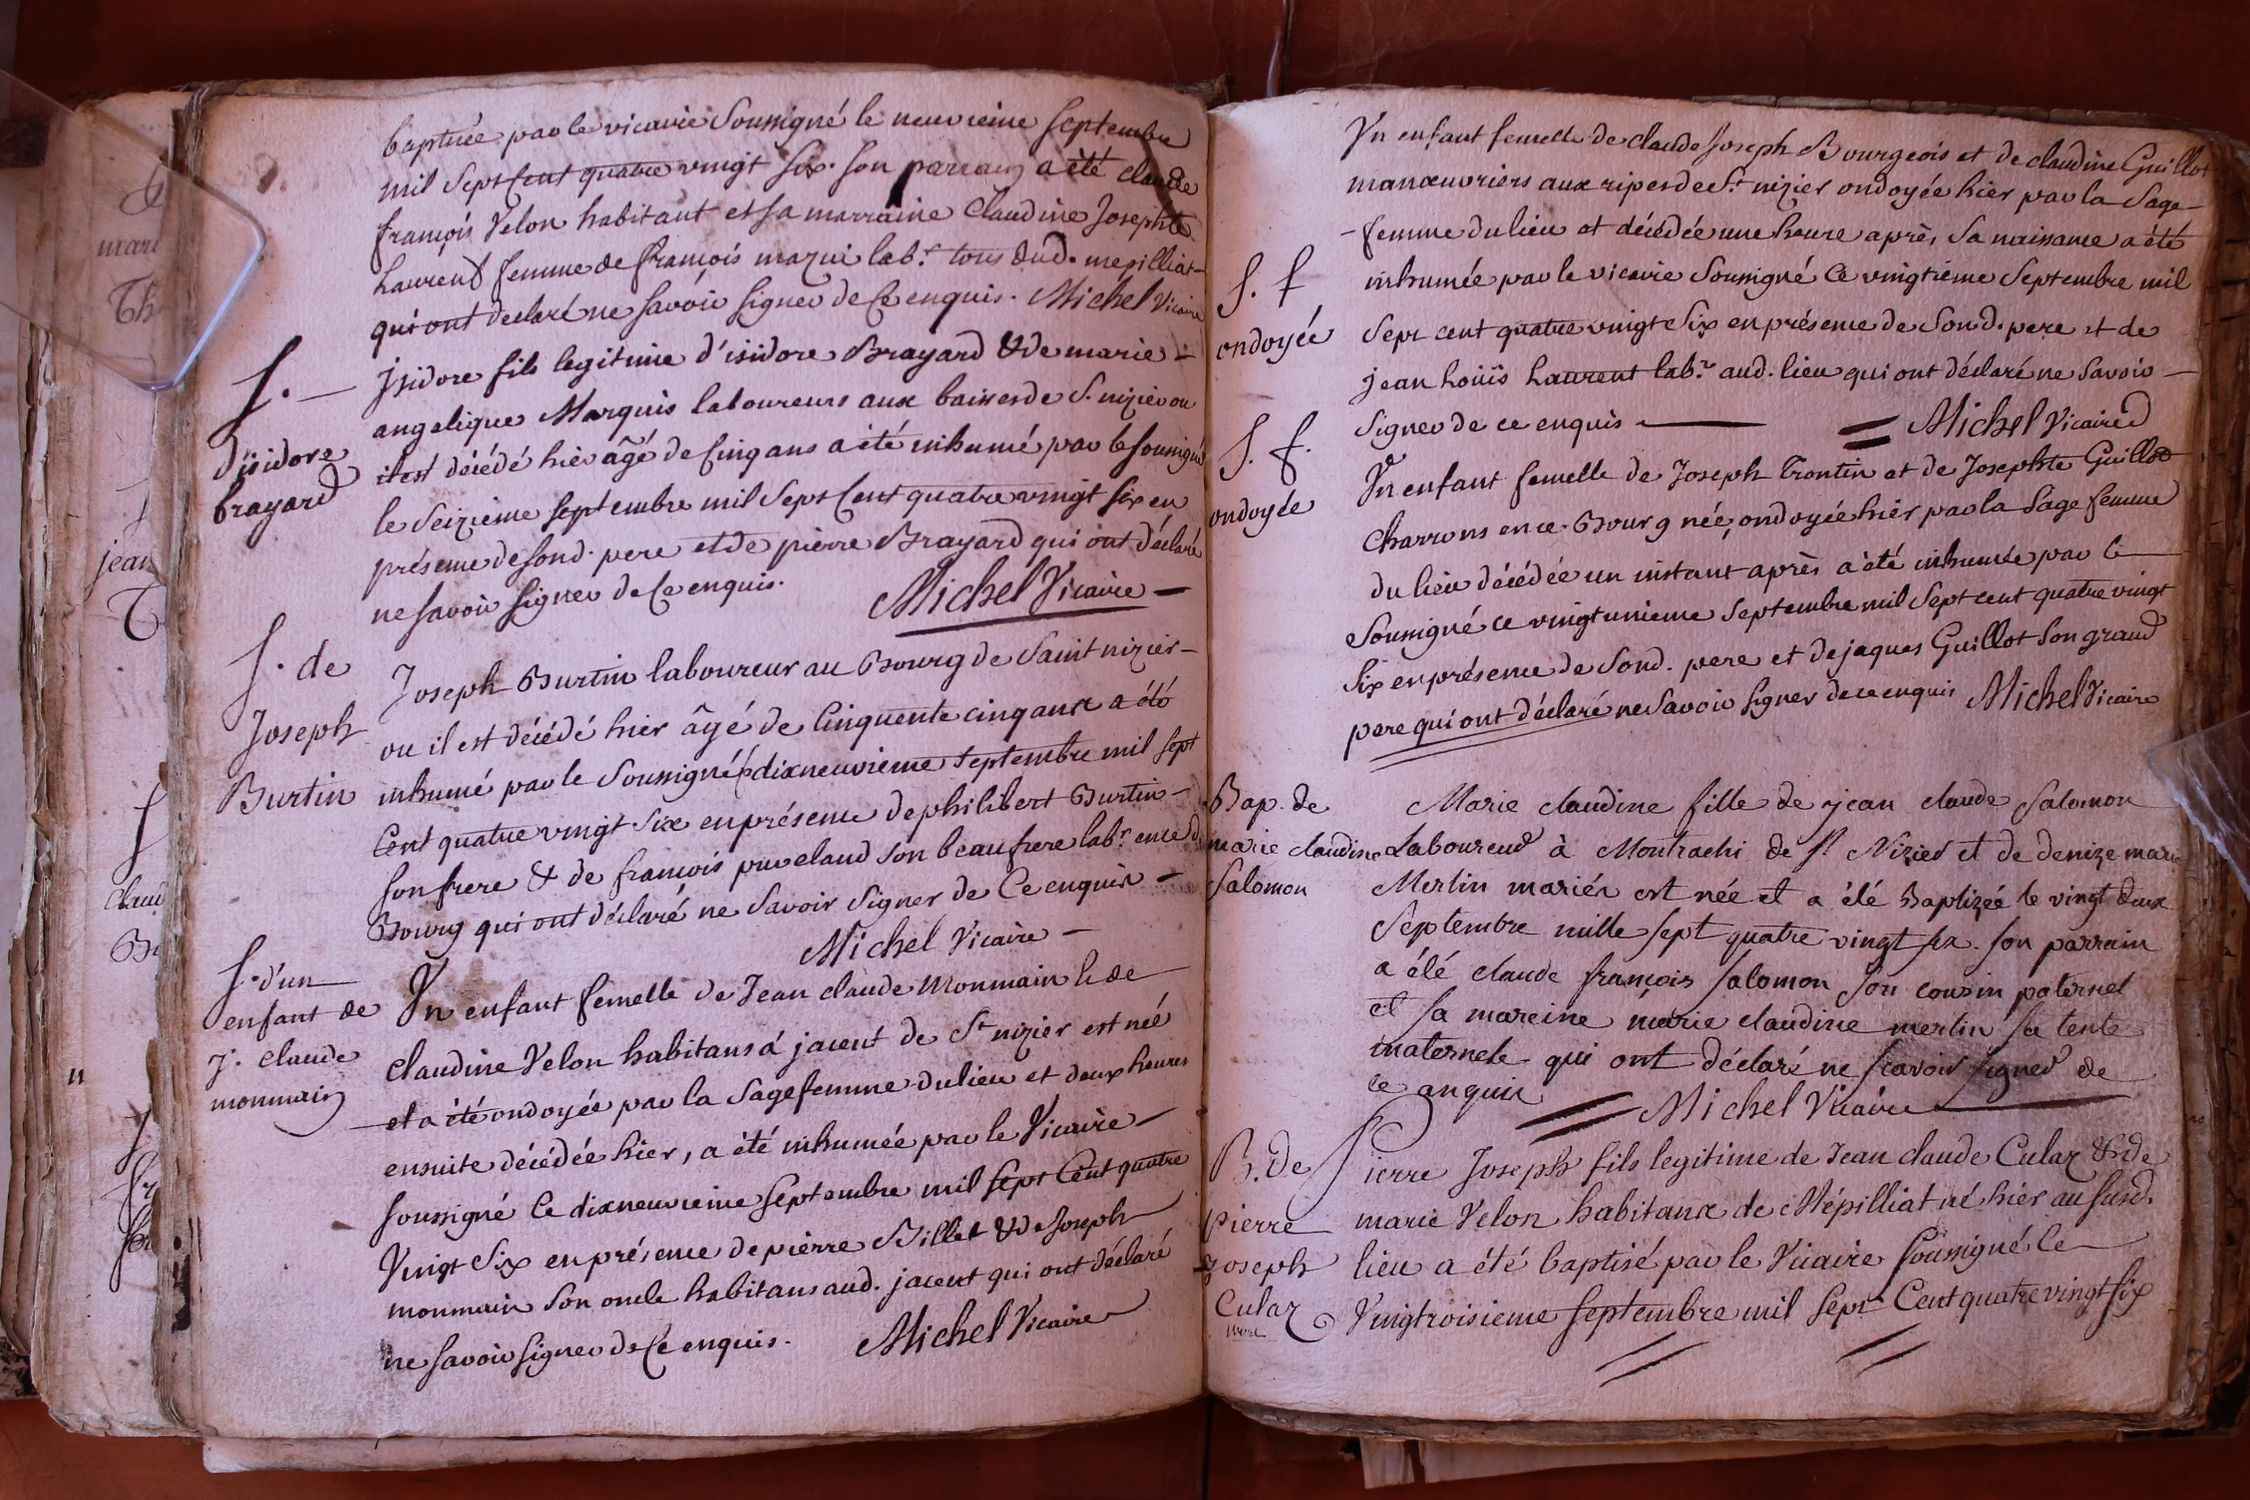 baptisée par le vicaire Soussigné le neuvieme septembre
mil Sept Cent quatre vingt six. son parrain a été claude
françois Velon habitant et sa marraine Claudine Josephte
Laurent femme de françois mazui labr. tous dud. mepilliat
qui ont declaré ne savoir signer de Ce enquis. Michel Vicaire
S. —
d'isidore
brayard
Isidore fils legitime d'isidore Brayard & de marie
angelique Marquis laboureurs aux baisses de S. nizier ou
il est décédé hier âgé de Cinq ans a été inhumé par le soussigné
le Seizieme septembre mil Sept Cent quatre vingt six en
présence de sond. pere et de pierre Brayard qui ont déclaré
ne savoir signer de Ce enquis.
Michel Vicaire
S. de
Joseph
Burtin
Joseph Burtin laboureur au Bourg de Saint nizier
ou il est décédé hier âgé de Cinquente cinq anx a été
inhumé par le Soussigné le dixneuvieme septembre mil sept
Cent quatre vingt six en présence de philibert Burtin
son frere & de françois puvelaud son beaufrere labr. en ce d
Bourg qui ont déclaré ne savoir signer de Ce enquis
Michel Vicaire
S. d'un
enfant de
J. claude
monmain
Un enfant femelle de Jean claude Monmain & de
claudine Velon habitans à jacent de St nizier est née
et a été ondoyée par la Sagefemme du lieu et deux heures
ensuite décédée hier, a été inhumée par le Vicaire
soussigné Ce dixneuvieme septembre mil sept Cent quatre
Vingt Six en présence de pierre Billet & de Joseph
monmain son oncle habitans aud. jacent qui ont déclaré
ne savoir signer de Ce enquis.
Michel Vicaire
S. f
ondoyée
Un enfant femelle de claude Joseph Bourgeois et de claudine Guillot
manœuvriers aux ripes de St. nizier ondoyée hier par la Sage
femme du lieu et décédée une heure après sa naissance a été
inhumée par le vicaire Soussigné Ce vingtieme Septembre mil
Sept cent quatre vingt Six en présence de Sond. pere et de
jean Loüis Laurent labr. aud. lieu qui ont déclaré ne Savoir
signer de ce enquis
Michel Vicaire
S. f.
ondoyée
Un enfant femelle de Joseph Trontin et de Josephte Guillot
Charrons en ce Bourg née, ondoyée hier par la Sage femme
du lieu décédée un instant après a été inhumée par le
Soussigné ce vingtunieme Septembre mil Sept cent quatre vingt
Six en présence de Sond. pere et de jaques Guillot son grand
pere qui ont déclaré ne Savoir signer de ce enquis Michel Vicaire
Bap. de
marie claudine
salomon
Marie claudine fille de jean claude Salomon
Laboureur à Montrachi de St Nizier et de denize marie
Merlin mariés est née et a élé Baptizée le vingt deux
Septembre mille sept quatre vingt six. son parrain
a élé claude françois salomon son cousin paternel
et sa mareine marie claudine merlin sa tente
maternele qui ont déclaré ne scavoir signer de
ce anquis
Michel Vicaire
B. de
pierre
Joseph
Cular
Pierre Joseph fils legitime de Jean claude Cular & de
marie Velon habitanx de Mépilliat né hier au susd.
lieu a été baptisé par le Vicaire soussigné ce
Vingtroisieme septembre mil Sept Cent quatre vingt six